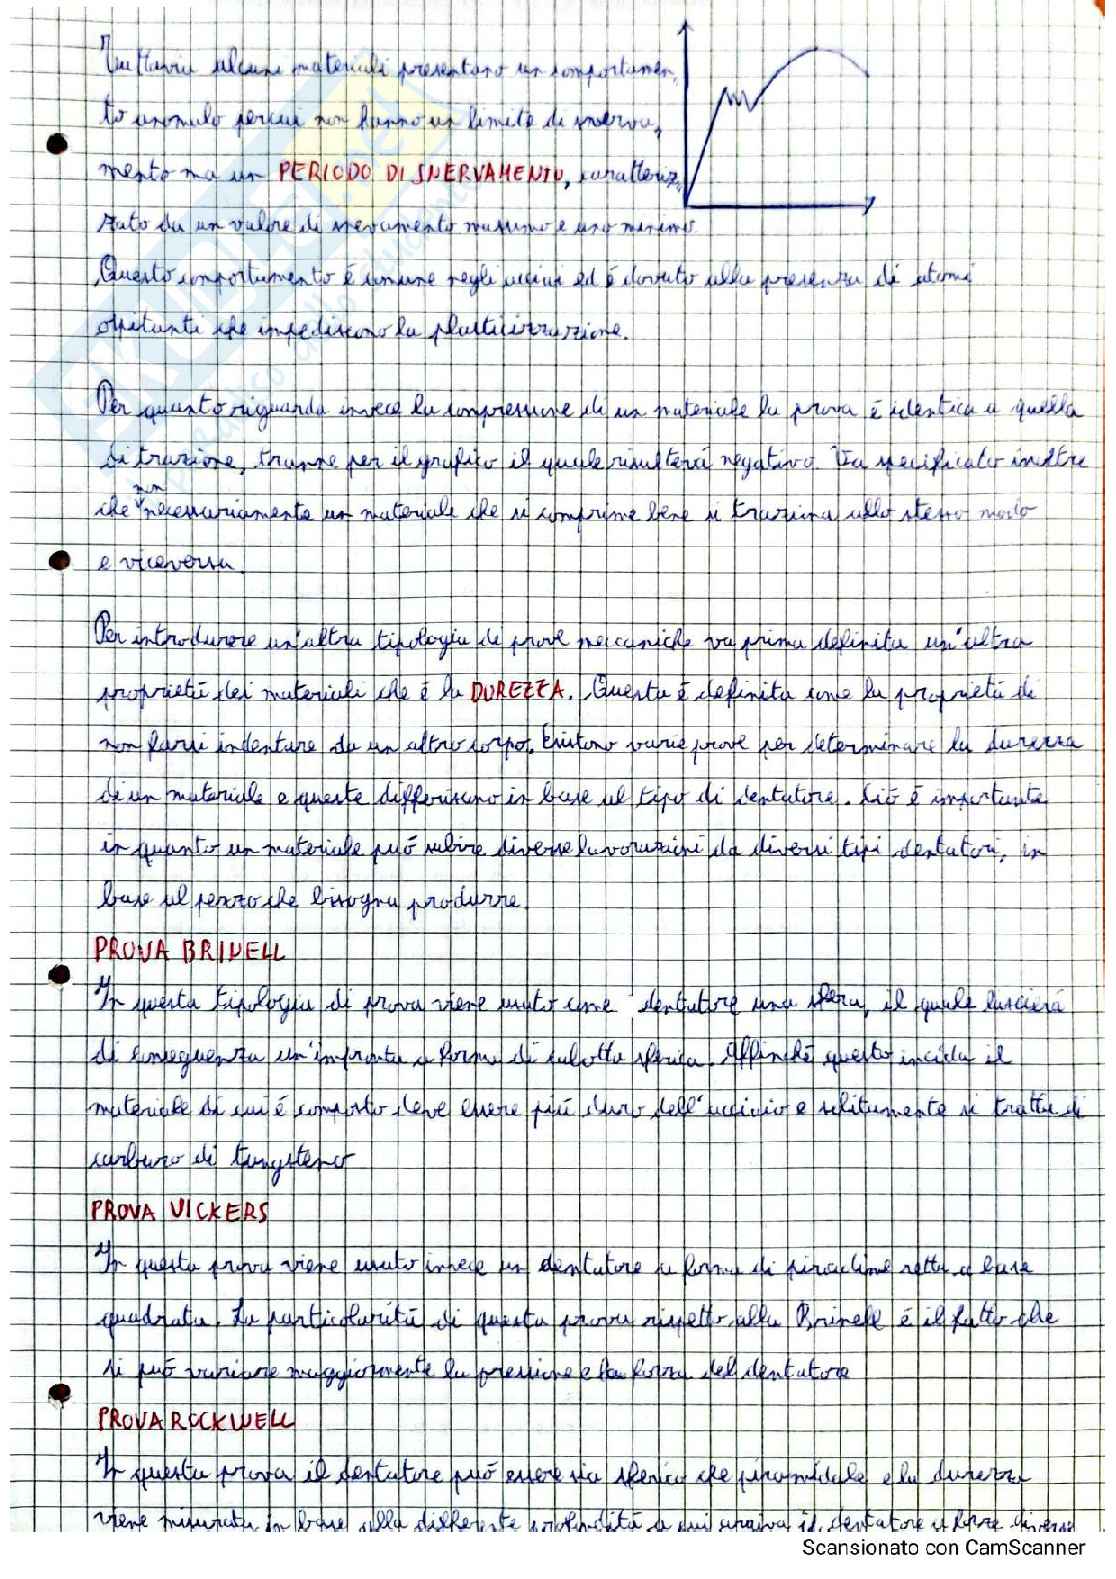 Tuttavia alcuni materiali presentano un comportamen,
to anomalo per cui non hanno un limite di snerva,
mento ma un PERIODO DI SNERVAMENTO, caratteriz,
zato da un valore di snervamento massimo e uno minimo
Questo comportamento é comune negli acciai ed é dovuto alla presenza di atomi
ospitanti che impediscono la plasticizzazione.
Per quanto riguarda invece la compressione di un materiale la prova é identica a quella
di trazione, tranne per il grafico il quale risulterá negativo. Va specificato inoltre
che non necessariamente un materiale che si comprime bene si traziona allo stesso modo
e viceversa.
Per introdurre un'altra tipologia di prove meccaniche va prima definita un'altra
proprietá dei materiali che é la DUREZZA. Questa é definita come la proprietá di
non farsi indentare da un altro corpo. Esistono varie prove per determinare la durezza
di un materiale e queste differiscono in base al tipo di dentatore. Ció é importante
in quanto un materiale puó subire diverse lavorazioni da diversi tipi dentatori, in
base al pezzo che bisogna produrre.
PROVA BRINELL
In questa tipologia di prova viene usato come dentatore una sfera, il quale lascierá
di conseguenza un'impronta a forma di calotta sferica. Affinché questo incida il
materiale di cui é composto deve essere piú duro dell'acciaio e solitamente si tratta di
carburo di tungsteno
PROVA VICKERS
In questa prova viene usato invece un dentatore a forma di piramide retta a base
quadrata. La particolaritá di questa prova rispetto alla Brinell é il fatto che
si puó variare maggiormente la pressione e la forza del dentatore
PROVA ROCKWELL
In questa prova il dentatore puó essere sia sferico che piramidale e la durezza
viene misurata in base alla differente profonditá a cui arriva il dentatore a forze diverse
Scansionato con CamScanner